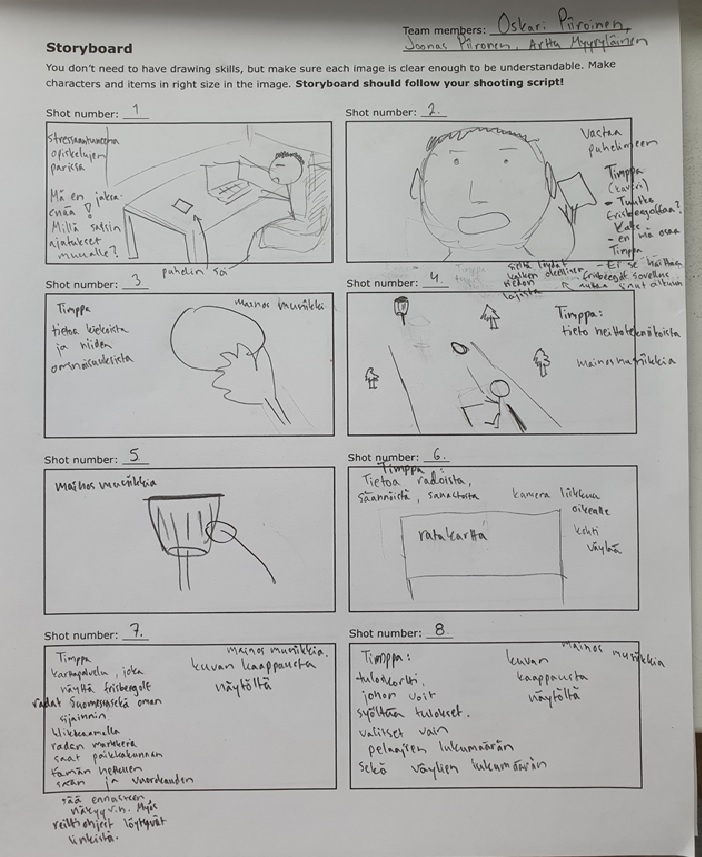 Team members: Oskari Piiroinen,
Joonas Piironen, Arttu Myyryläinen
Storyboard
You don't need to have drawing skills, but make sure each image is clear enough to be understandable. Make
characters and items in right size in the image. Storyboard should follow your shooting script!
Shot number: 1
opiskelujen
parissa
Mä en jaksa
enää!
Millä saisin
ajatukset
muualle?
puhelin soi
Shot number: 2.
Vastaa
puhelimeen
Timppa
(kaveri)
frisbeegolfaa?
Kalle
- en mä osaa
Timppa
- Ei se haittaa
Shot number: 3
Timppa
tietoa kiekoista
ja niiden
ominaisuuksista
mainos musiikki
Shot number: 4.
Timppa:
tieto heittotekniikoista
mainosmusiikkia
Shot number: 5
mainos musiikkia
Shot number: 6.
Timppa:
Tietoa radoista,
säännöistä, sanastosta
kamera liikkuu
oikealle
kohti
väylää
ratakartta
Shot number: 7.
Timppa
karttapalvelu, joka
näyttä frisbergolf
radat Suomessa sekä oman
sijainnin
klikkaamalla
radan markkeria
saat paikkakunnan
tämän hetkisen
sään ja vuorokauden
sää ennusteen
näkyviin. Myös
reittiohjeet löytyvät
linkistä.
mainos musiikkia.
kuvan kaappausta
näytöltä
Shot number: 8
Timppa:
tuloskortti.
johon voit
syöttää tulokset.
valitset vain
pelaajien lukumäärän
sekä väylien lukumäärän
mainos musiikkia
kuvan
kaappausta
näytöltä